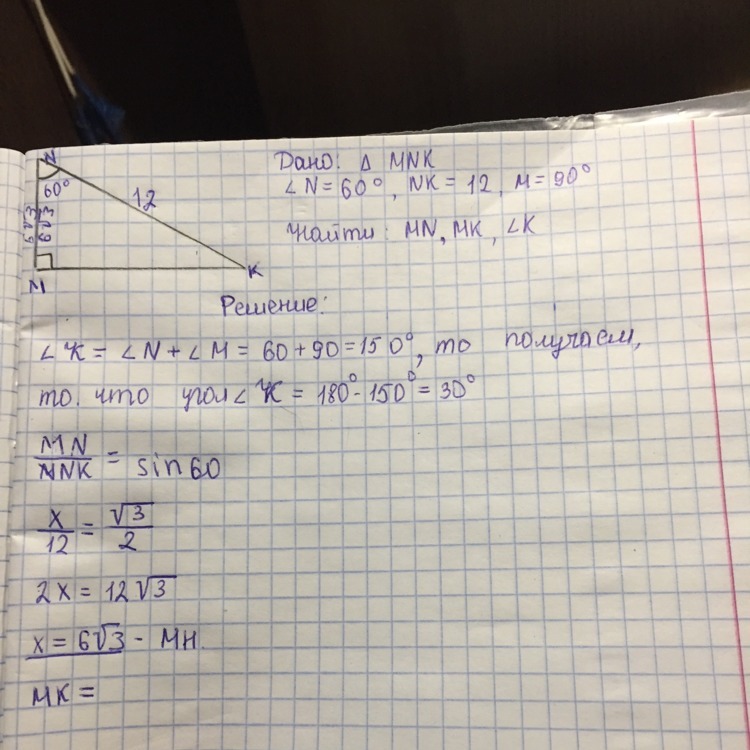 N
60°
12
6√3
6√3
M
K
Дано: Δ MNK
∠N = 60°, NK = 12, M = 90°
Найти: MN, MK, ∠K
Решение:
∠K = ∠N + ∠M = 60 + 90 = 150°, то получаем,
то. что угол ∠K = 180° - 150° = 30°
MN/NK = sin60
x/12 = √3/2
2x = 12√3
x = 6√3 - MH.
MK =